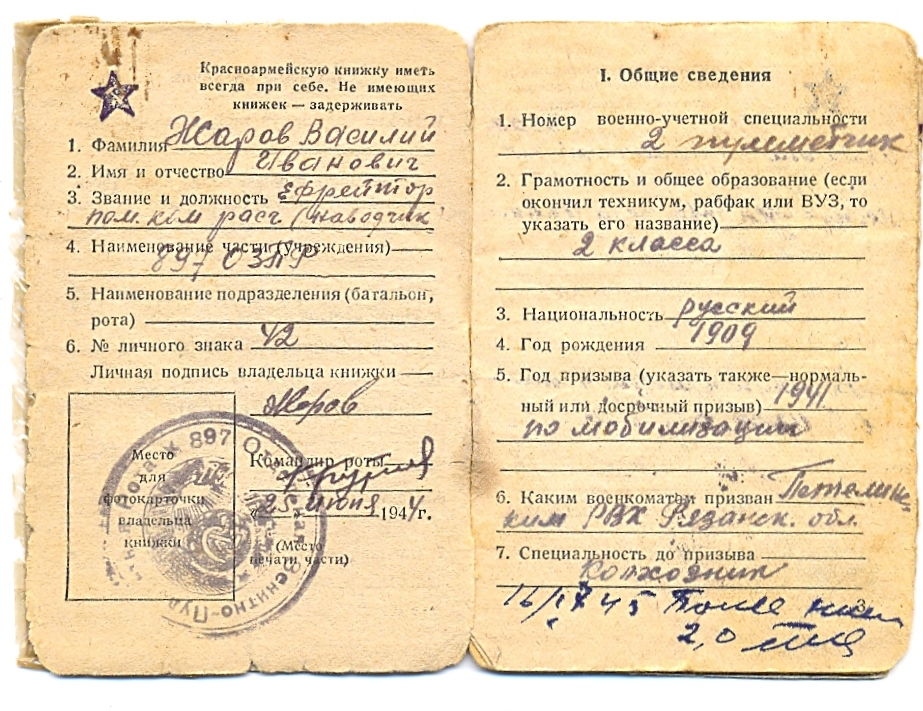 Красноармейскую книжку иметь
всегда при себе. Не имеющих
книжек — задерживать
1. Фамилия Жаров Василий
2. Имя и отчество Иванович
3. Звание и должность Ефрейтор
пом. ком расч (наводчик
4. Наименование части (учреждения)
897 ОЗПР
5. Наименование подразделения (батальон,
рота)
6. № личного знака 42
Личная подпись владельца книжки
Жаров
Место
для
фотокарточки
владельца
книжки
Командир роты
„25" июня 1944г.
(Место
печати части)
рота * 897 Отдельная Зенитно-Пул
I. Общие сведения
1. Номер военно-учетной специальности
2 пулеметчик
2. Грамотность и общее образование (если
окончил техникум, рабфак или ВУЗ, то
указать его название)
2 класса
3. Национальность русский
4. Год рождения 1909
5. Год призыва (указать также—нормаль-
ный или досрочный призыв) 1941
по мобилизации
6. Каким военкоматом призван Петелинс
ким РВК Рязанск. обл.
7. Специальность до призыва
колхозник
3
45
2,0